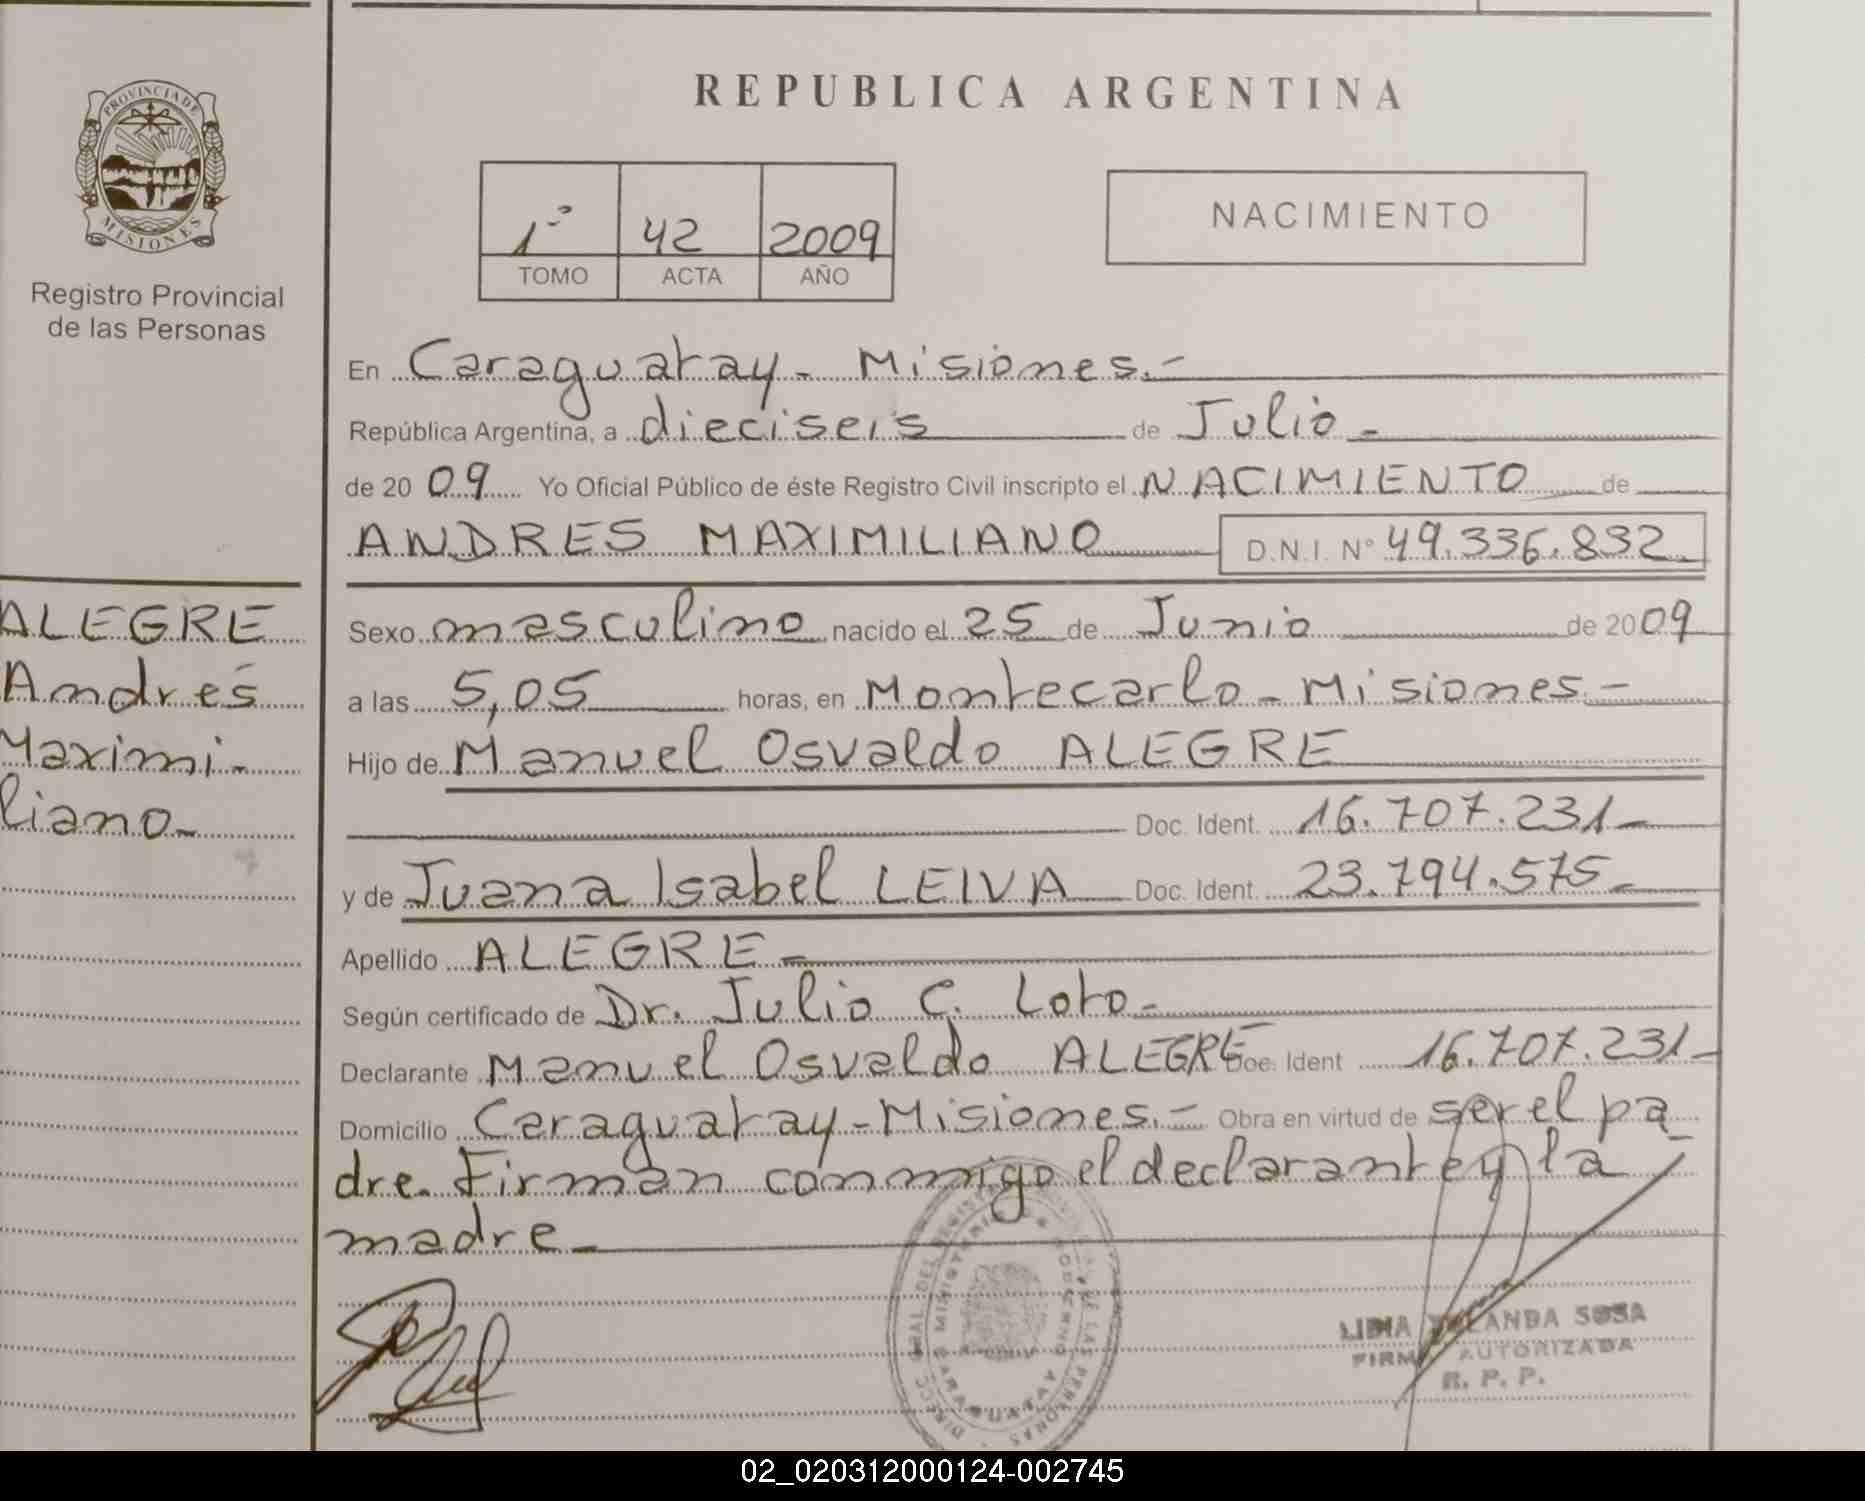 REPUBLICA ARGENTINA
PROVINCIA DE
MISIONES
Registro Provincial
de las Personas
1º 42 2009
TOMO ACTA AÑO
NACIMIENTO
En Caraguatay - Misiones.-
República Argentina, a dieciseis de Julio -
de 2009 Yo Oficial Público de éste Registro Civil inscripto el NACIMIENTO de
ANDRES MAXIMILIANO D.N.I. Nº 49.336.832
ALEGRE
Andrés
Maximi-
liano-
Sexo masculino nacido el 25 de Junio de 2009
a las 5,05 horas, en Montecarlo - Misiones -
Hijo de Manuel Osvaldo ALEGRE
Doc. Ident. 16.707.231-
y de Juana Isabel LEIVA Doc. Ident. 23.794.575-
Apellido ALEGRE -
Según certificado de Dr. Julio C. Loto-
Declarante Manuel Osvaldo ALEGRE Doc. Ident 16.707.231-
Domicilio Caraguatay - Misiones.- Obra en virtud de ser el pa
dre. Firman conmigo el declarante y la
madre -
LIDIA YOLANDA SOSA
FIRMA AUTORIZADA
R. P. P.
02_020312000124-002745